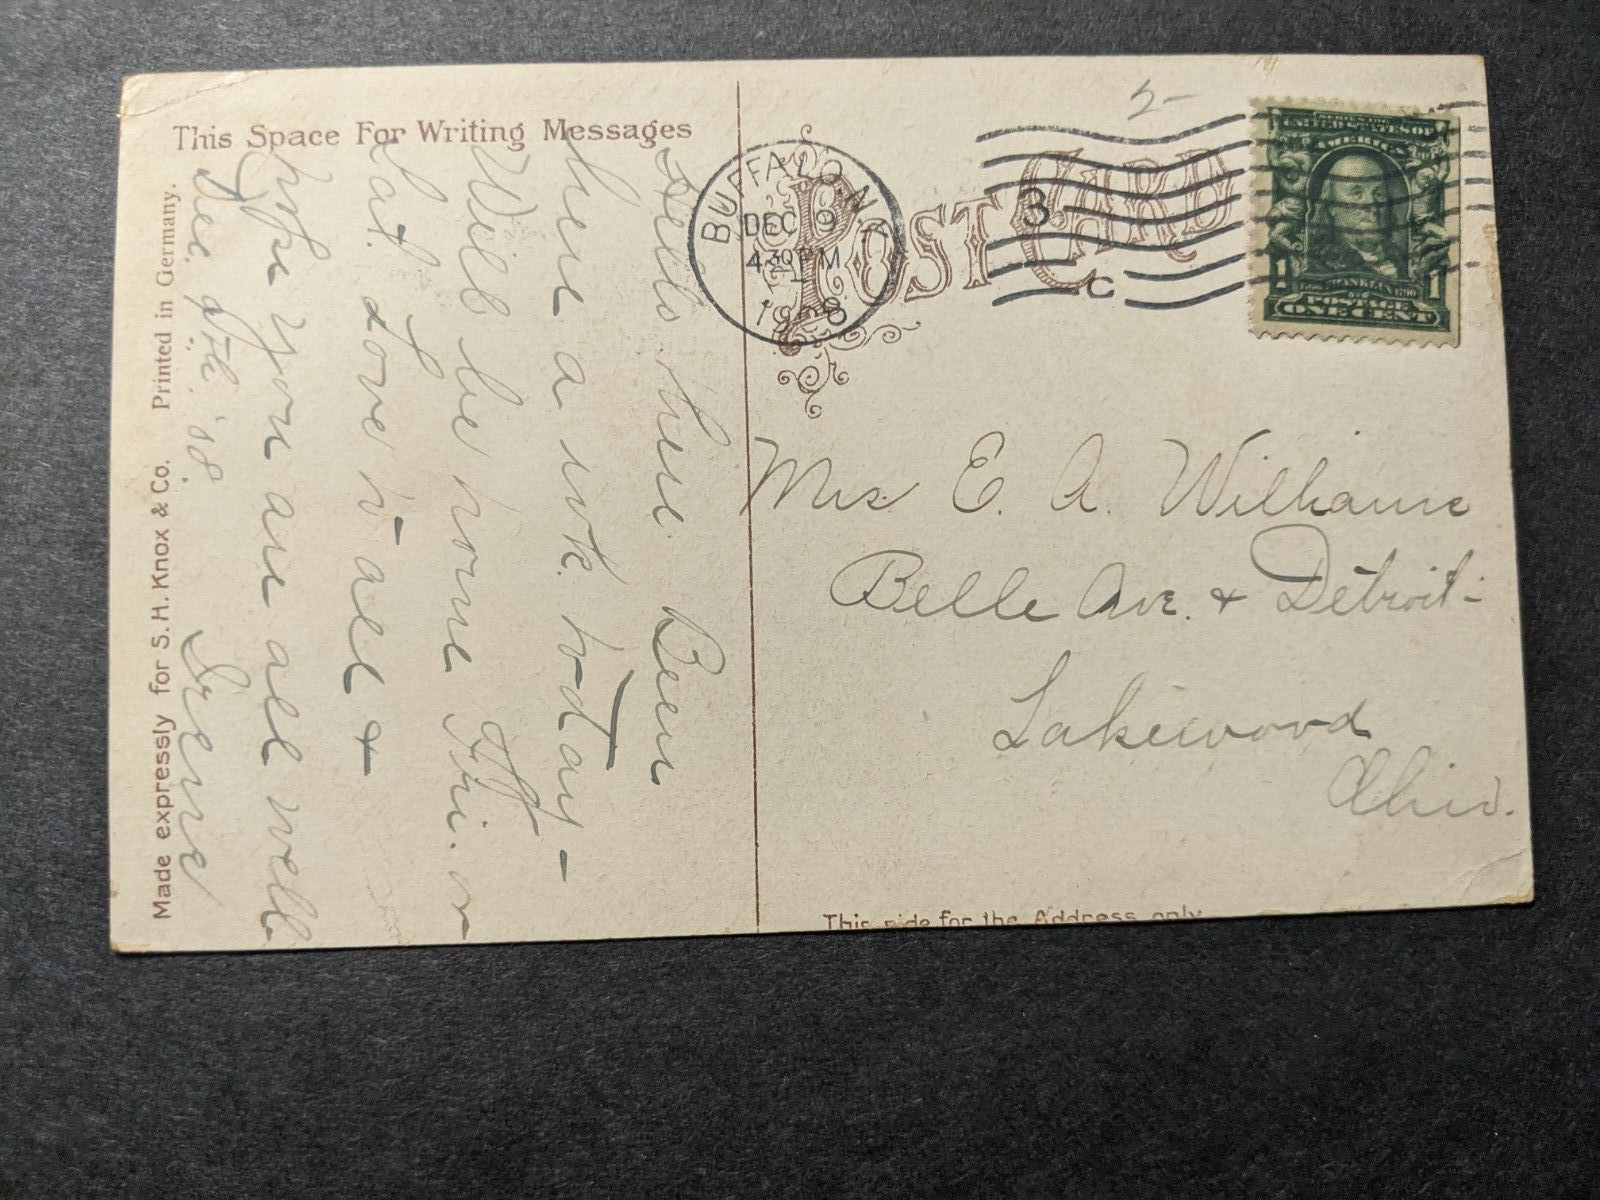 This Space For Writing Messages
Hello here. Been
here a wk. today -
Will be home Fri. or
Sat. Love to all &
hope you are all well
Dec 9th '08. Irene
Made expressly for S. H. Knox & Co. Printed in Germany.
POST CARD
BUFFALO, N.Y.
DEC 9
4 30 PM
1908
3
C
2-
UNITED STATES OF
AMERICA
1 1
FRANKLIN
POSTAGE
ONE CENT
Mrs E. A. Williams
Belle Ave. & Detroit -
Lakewood
Ohio.
This side for the Address only